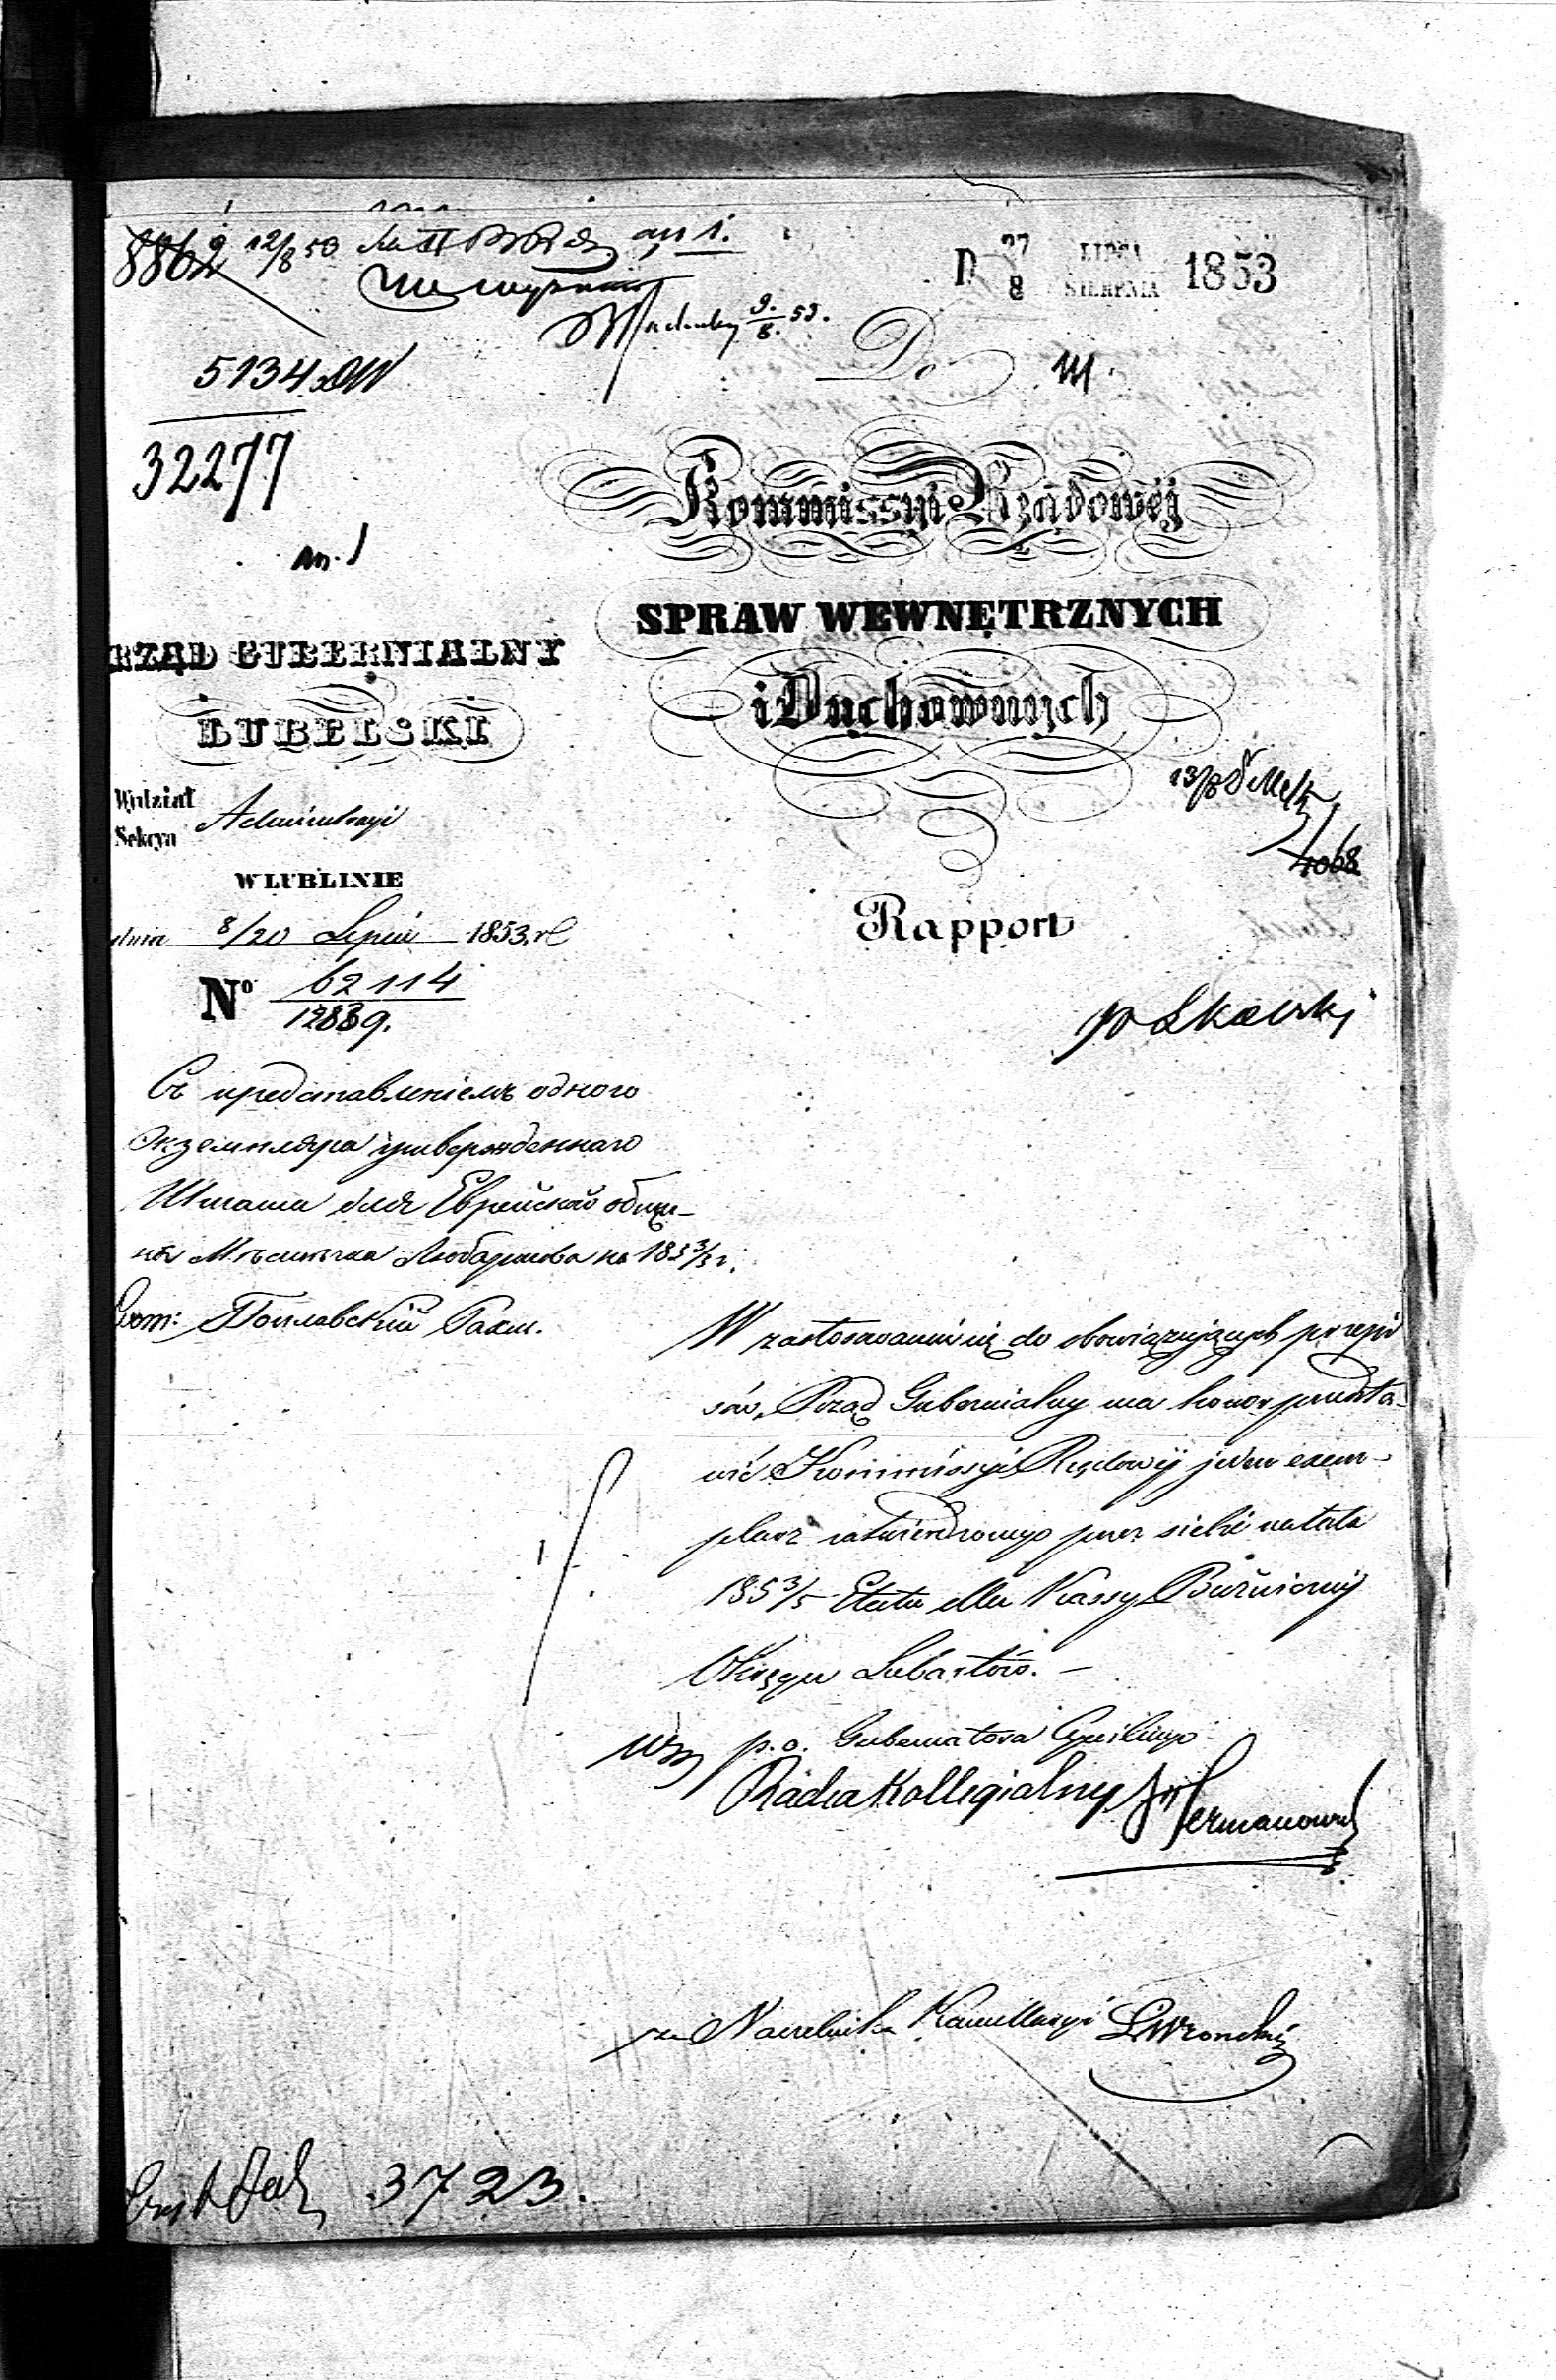 8862 12/8 53 an 1.
D 27/8 LIPCA SIERPNIA 1853
9./8. 53.
5134
Do
32277
an. 1
Kommissyi Rządowéj
SPRAW WEWNĘTRZNYCH
i Duchownych
RZĄD GUBERNIALNY
LUBELSKI
Wydział
Sekcya
Administracyi
13/8
4068
W LUBLINIE
dnia 8/20 Lipca 1853 r
Rapport
Nº 62114
12839.
Съ представленіемъ одного
Экземпляра утвержденнаго
Штата для Еврейской общи-
ны Мѣстечка Любартова на 1853/5 г.
W zastosowaniu się do obowiązujących przepi
sów, Rząd Gubernialny ma honor przedsta-
wić Kommissyi Rządowéj jeden exem-
plarz zatwierdzonego przez siebie na lata
1853/5 Etatu dla Kassy Bożniczny
Okręgu Lubartów. —
p. o. Gubernatora Cywilnego
Radca Kollegialny
Naczelnika Kancellaryi LWronski
3723.